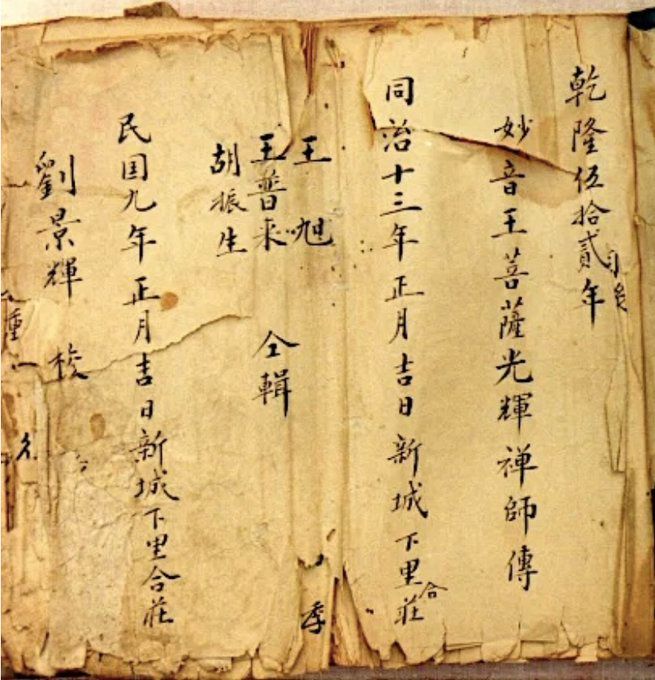 乾隆伍拾貳年
妙音王菩薩光輝禅師傳
同治十三年正月吉日新城下里合莊
王旭
王普来
胡振生
仝輯
民国九年正月吉日新城下里合莊
劉景輝 校